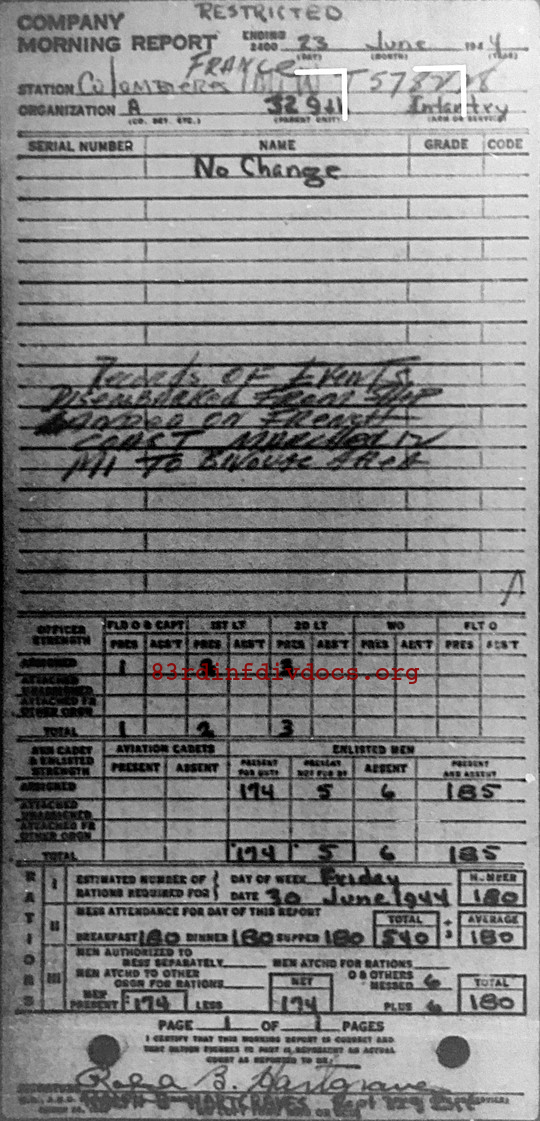 RESTRICTED
COMPANY
MORNING REPORT
ENDING 2400 23 June 1944
(DAY) (MONTH) (YEAR)
FRANCE
STATION Colombieres
ORGANIZATION A 329th Infantry
(CO. DET. ETC.) (PARENT UNIT) (ARM OR SERVICE)
SERIAL NUMBER NAME GRADE CODE
No Change
Records of Events
Disembarked From Ship
Landed on French
Coast Marched
To Bivouac Area
OFFICER STRENGTH FLD O & CAPT 1ST LT 2D LT WO FLT O
PRES ABS'T PRES ABS'T PRES ABS'T PRES ABS'T PRES ABS'T
ASSIGNED 1
83rdinfdivdocs.org
ATTACHED UNASSIGNED
ATTACHED FR OTHER ORGN
TOTAL 1 2 3
AVN CADET & ENLISTED STRENGTH AVIATION CADETS ENLISTED MEN
PRESENT ABSENT PRESENT FOR DUTY PRESENT NOT FOR DY ABSENT PRESENT AND ABSENT
ASSIGNED 174 5 6 185
ATTACHED UNASSIGNED
ATTACHED FR OTHER ORGN
TOTAL 174 5 6 185
RATIONS
I ESTIMATED NUMBER OF RATIONS REQUIRED FOR DAY OF WEEK Friday NUMBER
DATE 30 June 1944 180
II MESS ATTENDANCE FOR DAY OF THIS REPORT TOTAL ÷ 3 AVERAGE
BREAKFAST 180 DINNER 180 SUPPER 180 540 180
III MEN AUTHORIZED TO MESS SEPARATELY MEN ATCHD FOR RATIONS
MEN ATCHD TO OTHER ORGN FOR RATIONS NET O & OTHERS MESSED 6 TOTAL
MEN PRESENT 174 LESS 174 PLUS 6 180
PAGE 1 OF 1 PAGES
I CERTIFY THAT THIS MORNING REPORT IS CORRECT AND
B. Hartgraves
HARTGRAVES